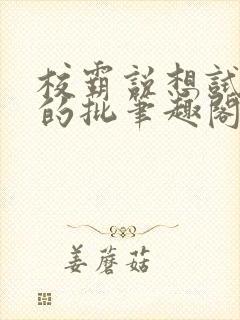 校霸说想试
的批笔趣阁
姜蘑菇